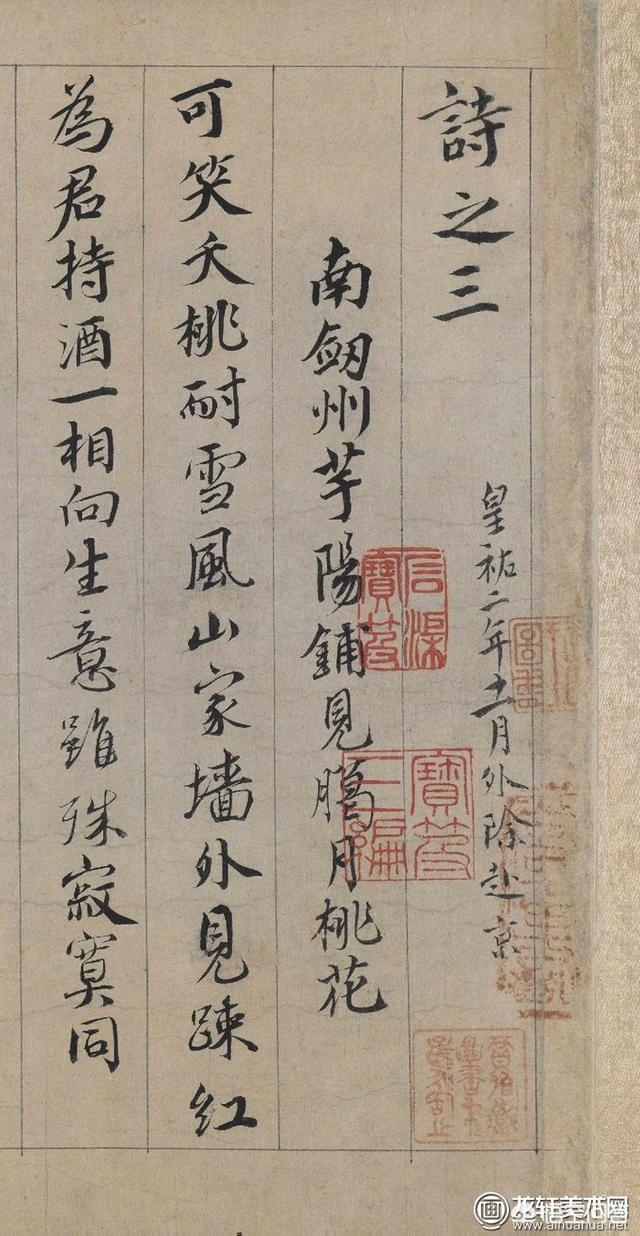 詩之三
皇祐二年十一月外除赴京
南劔州芋陽鋪見臈月桃花
可笑夭桃耐雪風山家墻外見踈紅
為君持酒一相向生意雖殊寂寞同
寶笈三編
www.aihuahua.net